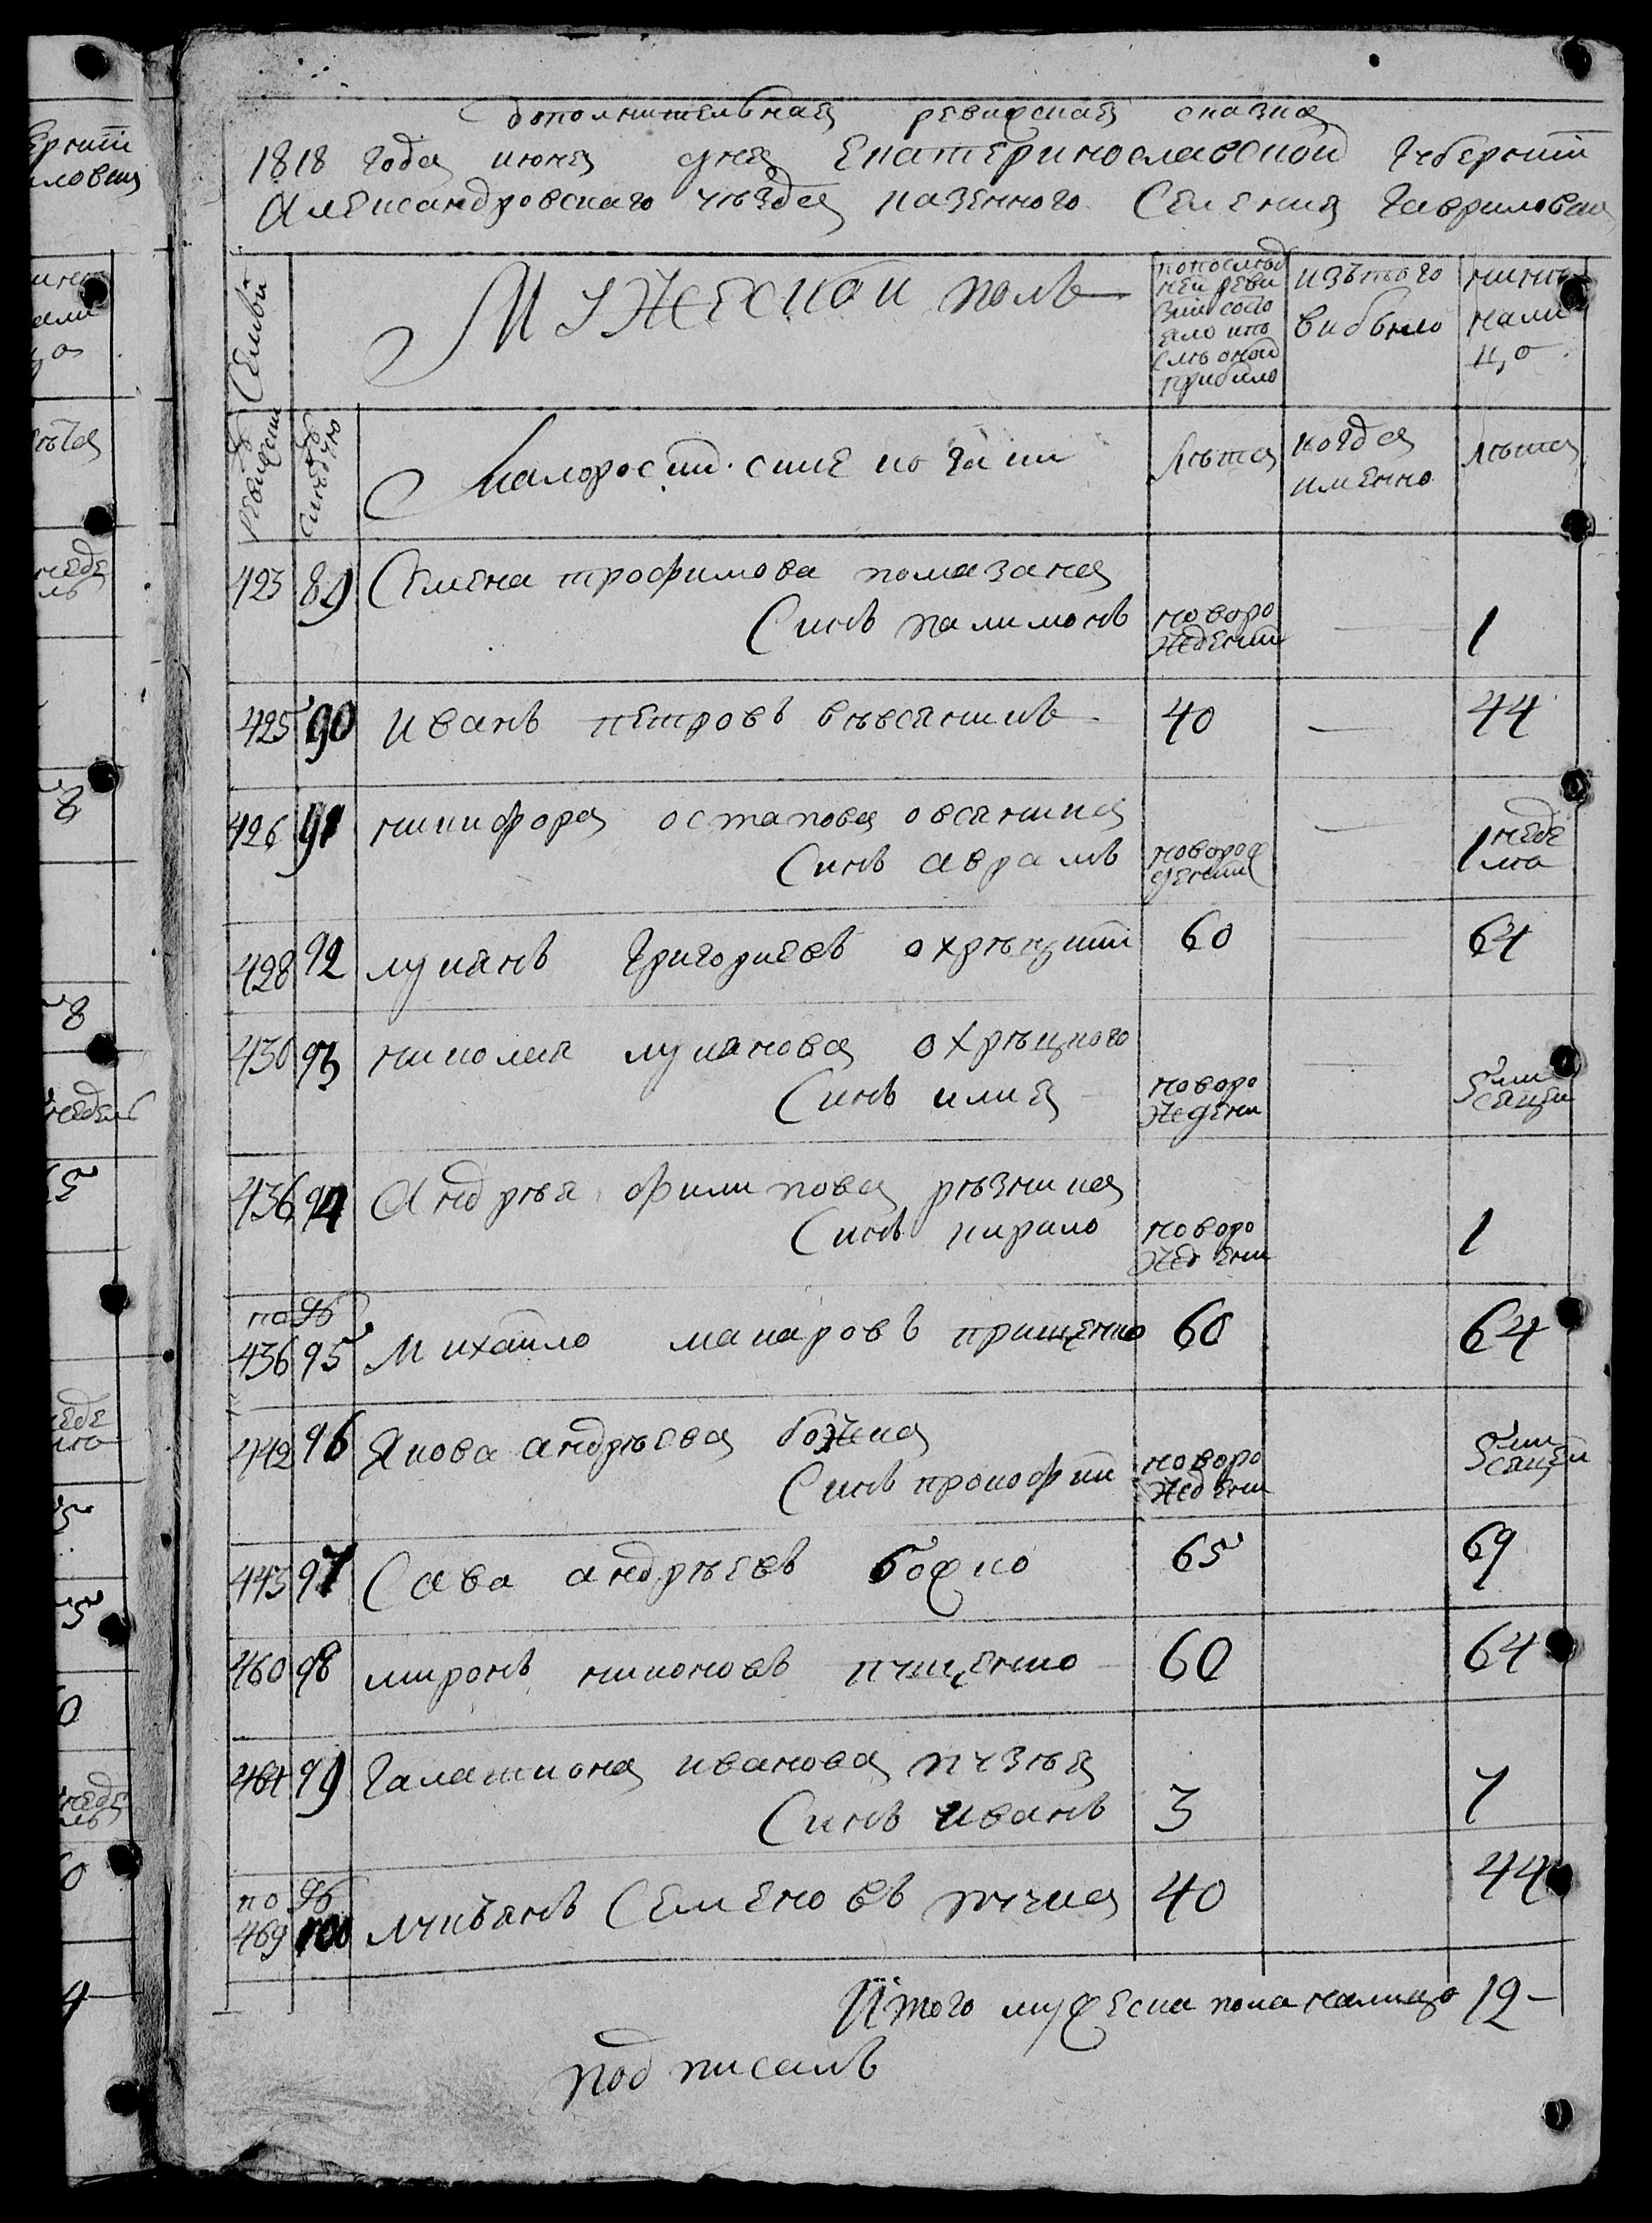 дополнительная ревизская сказка
1818 года июня дня Екатеринославской Губернии
Александровскаго уезда казенного Селения Гавриловки
Семьи
Мужеской полъ
по послед
ней реви
зии состо
яло и по
слѣ оной
прибило
изътого
вибыло
нинѣ
нали
цо
ревизски
Малоросийские козаки
лѣта
когда
именно
лѣта
423 89 Семена трофимова помазана
Синъ палимонъ новоро
жедении — 1
425 90 иванъ петровъ вѣвсяникъ 40 — 44
426 91 никифора остапова овсяника —
Синъ аврамъ новорож
дении 1 неде
ля
428 92 лукянъ Григориевъ охрѣцкий 60 — 64
430 93 николая лукянова охрѣцкого
Синъ илия новоро
ждени 5 ми
сяци
436 94 Андрѣя филипова рѣзника
Синъ кирило новоро
ждени 1
по №
436 95 Михайло макаровъ прищенко 60 64
442 96 Якова андрѣева божка
Синъ прокофий новоро
ждени 5 ми
сяцей
443 97 Сава андрѣевъ божко 65 69
460 98 миронъ никоновъ кущенко 60 64
461 99 Галактиона иванова пузѣя
Синъ иванъ 3 7
по №
469 100 лукьянъ Семеновъ 40 44
Итого мужеска пола налицо 12 –
подписалъ